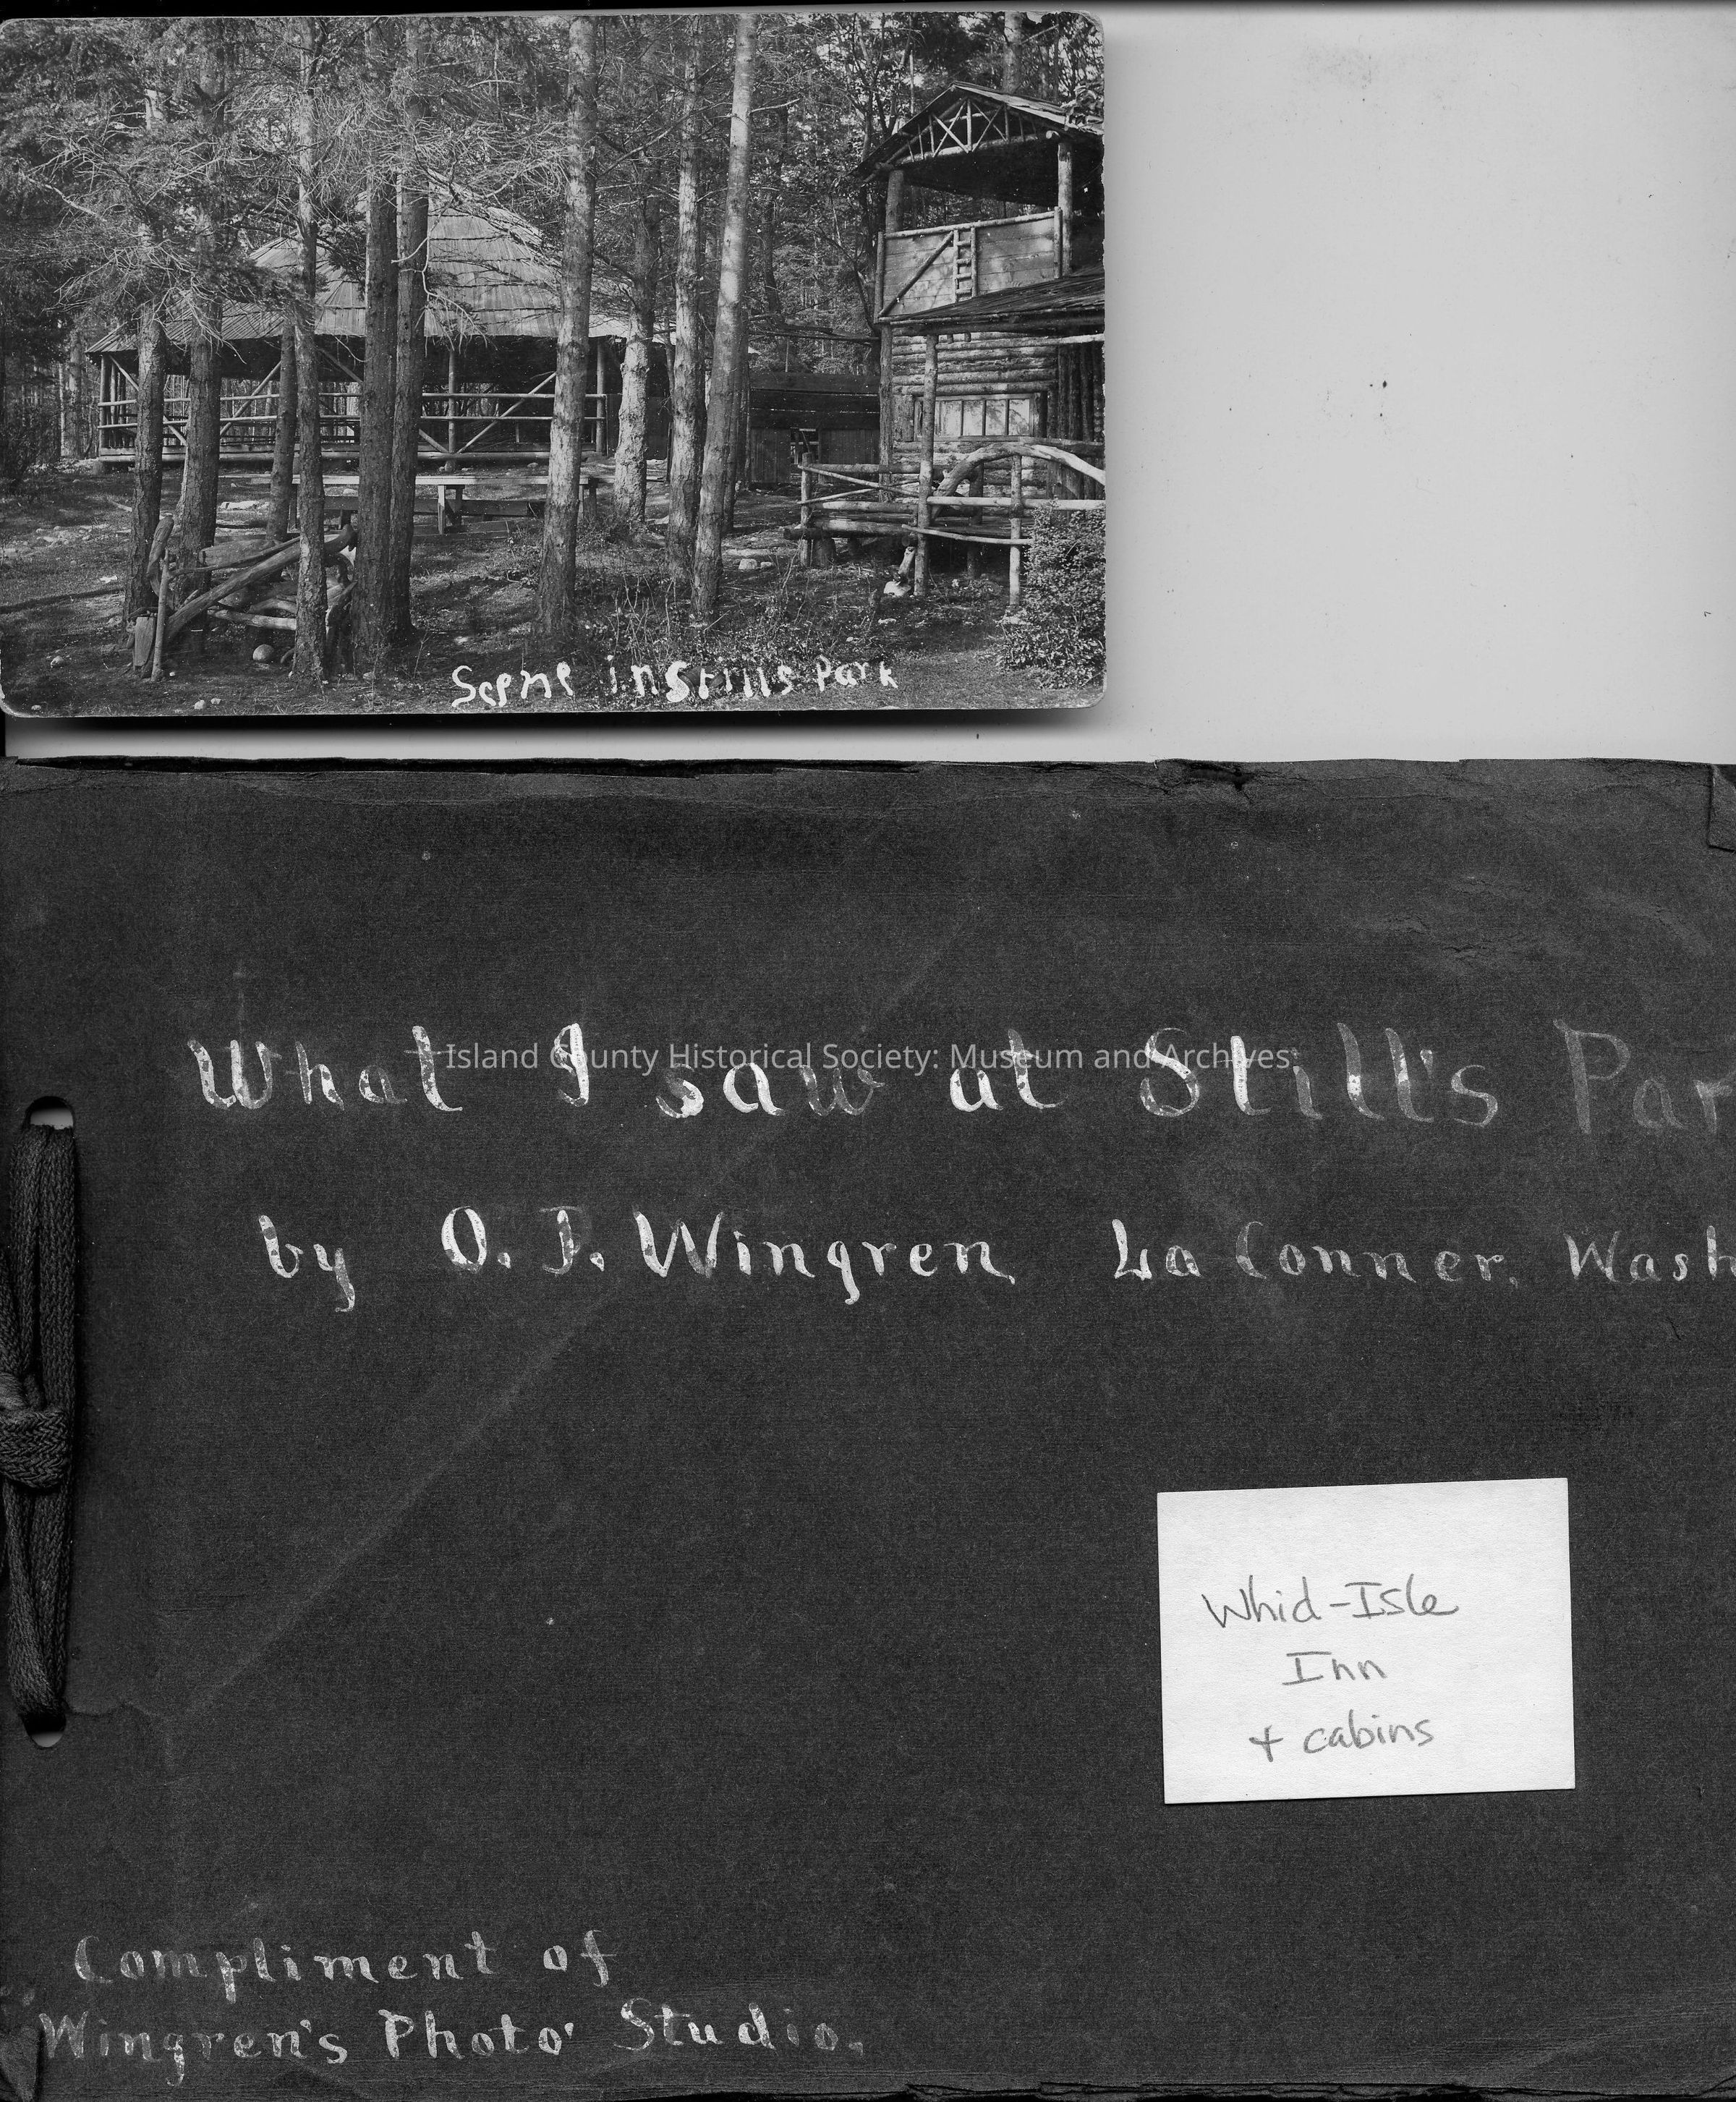 Scene in Stills Park
What I saw at Still's Par
Island County Historical Society: Museum and Archives
by O. J. Wingren, La Conner, Wash
Whid-Isle
Inn
+ cabins
Compliment of
Wingren's Photo' Studio.